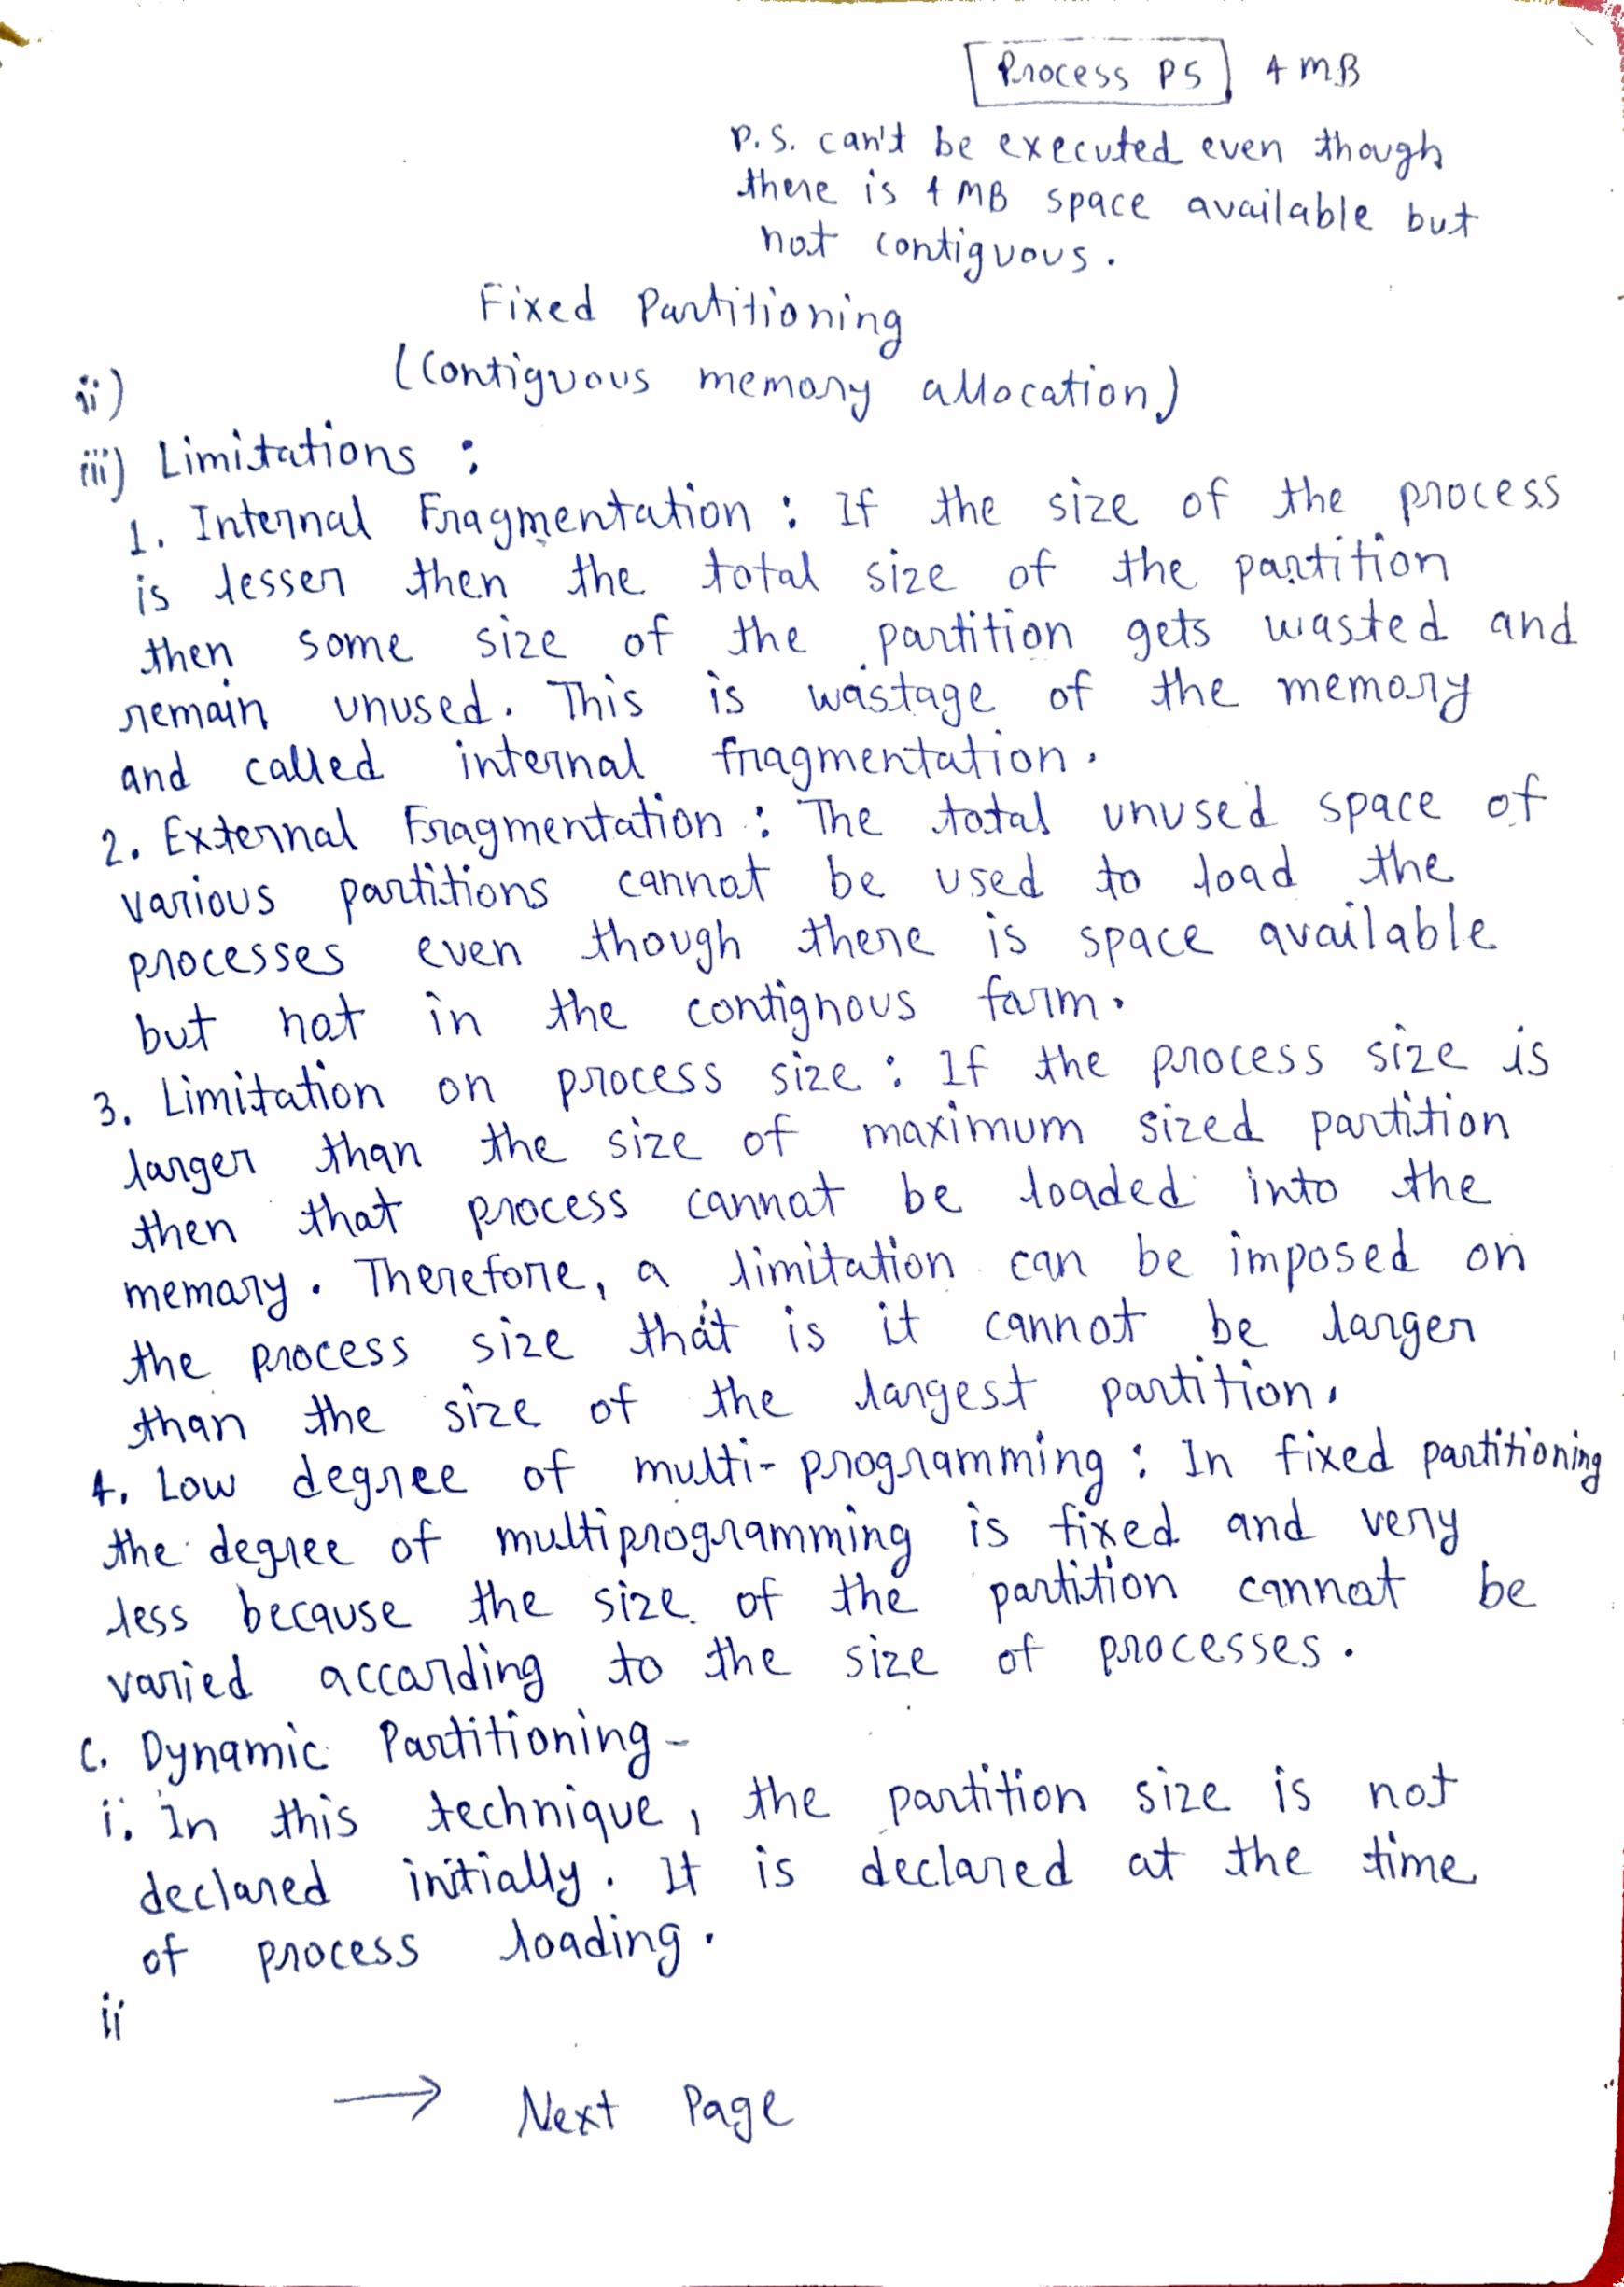 Process P5 4 MB
P.S. can't be executed even though
there is 4 MB space available but
not contiguous.
Fixed Partitioning
(Contiguous memory allocation)
ii)
iii) Limitations :
1. Internal Fragmentation : If the size of the process
is lesser then the total size of the partition
then some size of the partition gets wasted and
remain unused. This is wastage of the memory
and called internal fragmentation.
2. External Fragmentation : The total unused space of
various partitions cannot be used to load the
processes even though there is space available
but not in the contignous form.
3. Limitation on process size : If the process size is
larger than the size of maximum sized partition
then that process cannot be loaded into the
memory. Therefore, a limitation can be imposed on
the process size that is it cannot be larger
than the size of the largest partition.
4. Low degree of multi-programming : In fixed partitioning
the degree of multiprogramming is fixed and very
less because the size of the partition cannot be
varied according to the size of processes.
C. Dynamic Partitioning -
i. In this technique, the partition size is not
declared initially. It is declared at the time
of process loading.
ii
→ Next Page